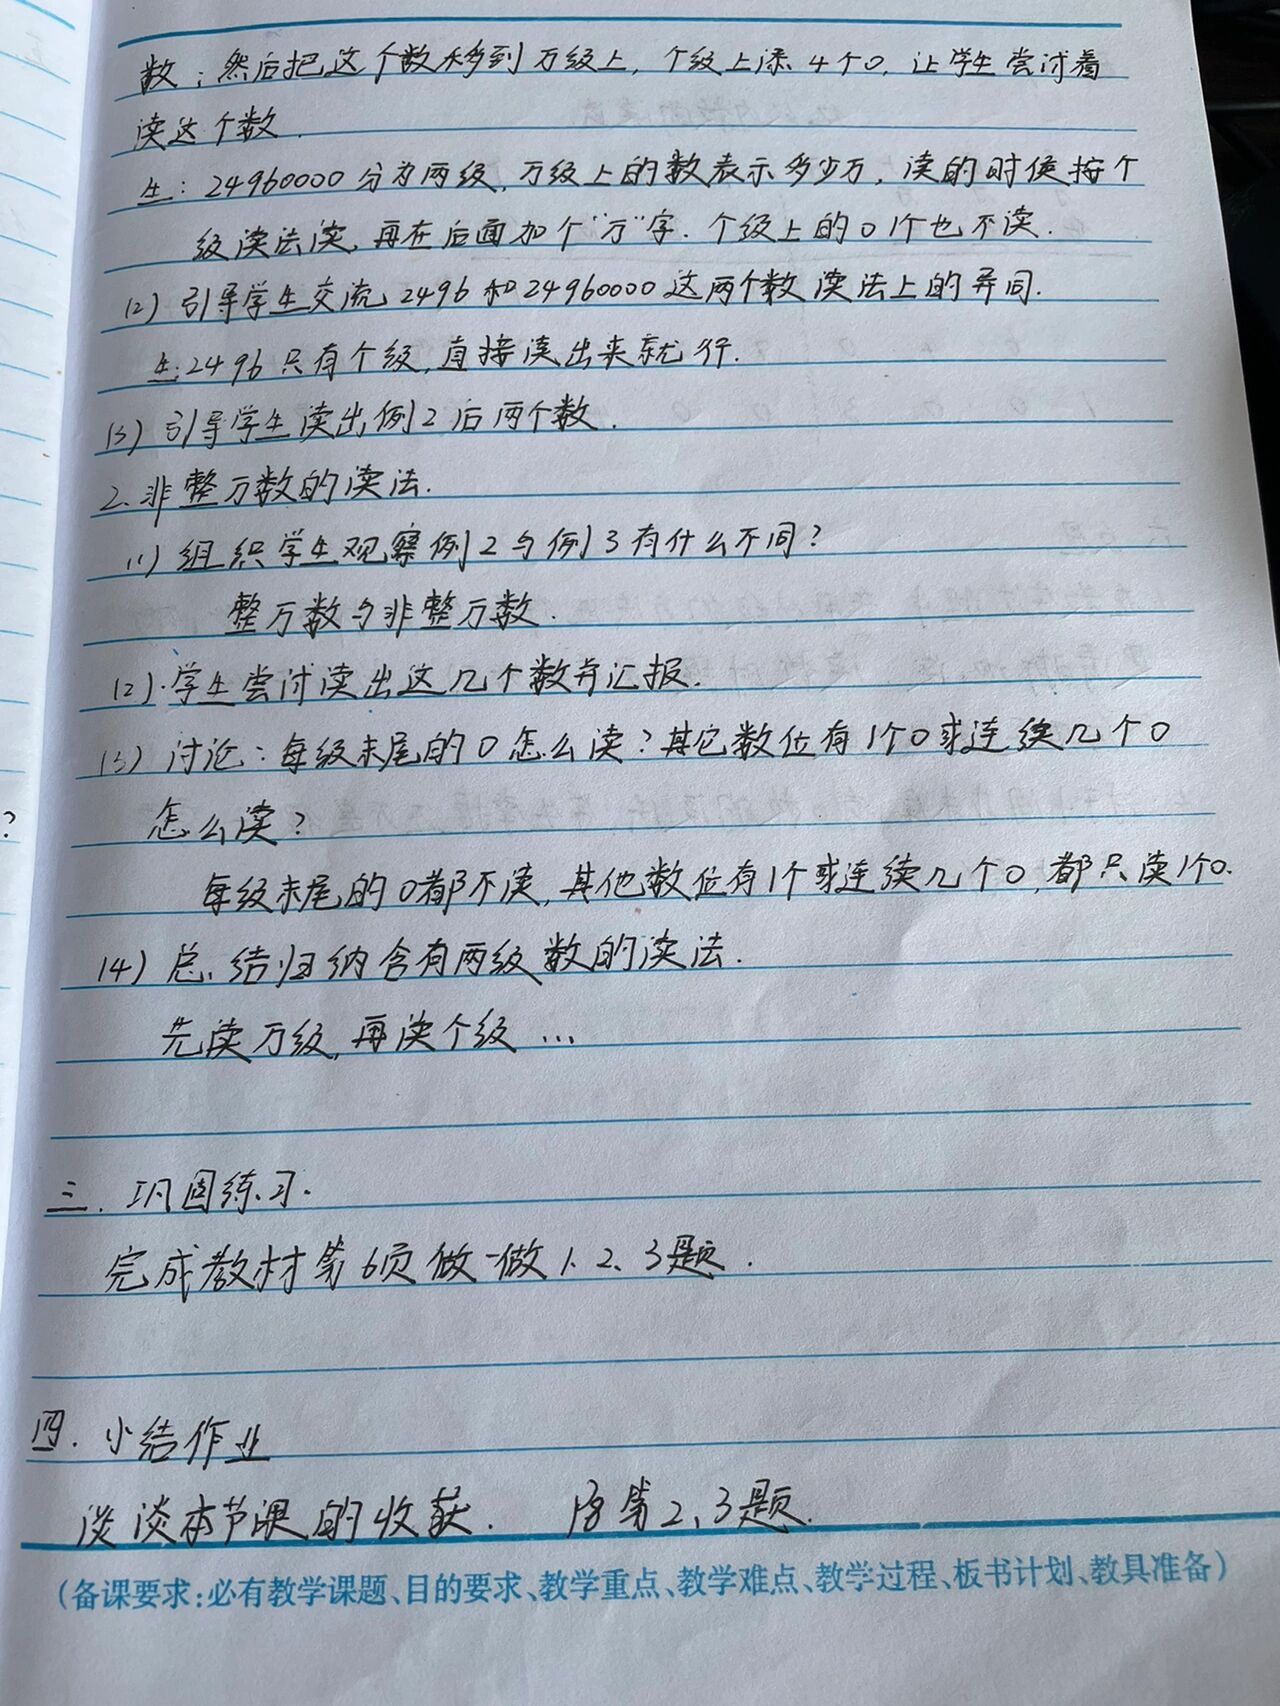 数；然后把这个数移到万级上，个级上添4个0，让学生尝试着
读这个数.
生：24960000分为两级，万级上的数表示多少万，读的时候按个
级读法读，再在后面加个“万”字.个级上的0 1个也不读.
(2) 引导学生交流，2496和24960000这两个数读法上的异同.
生：2496只有个级，直接读出来就行.
(3) 引导学生读出例2后两个数.
2.非整万数的读法.
(1) 组织学生观察例2与例3有什么不同？
整万数与非整万数.
(2).学生尝试读出这几个数并汇报.
(3) 讨论：每级末尾的0怎么读？其它数位有1个0或连续几个0
怎么读？
每级末尾的0都不读，其他数位有1个或连续几个0，都只读1个0.
(4) 总结归纳含有两级数的读法.
先读万级，再读个级 …
三.巩固练习.
完成教材第6页做一做1、2、3题.
四.小结作业
谈谈本节课的收获. 第2、3题.
(备课要求:必有教学课题、目的要求、教学重点、教学难点、教学过程、板书计划、教具准备)
?